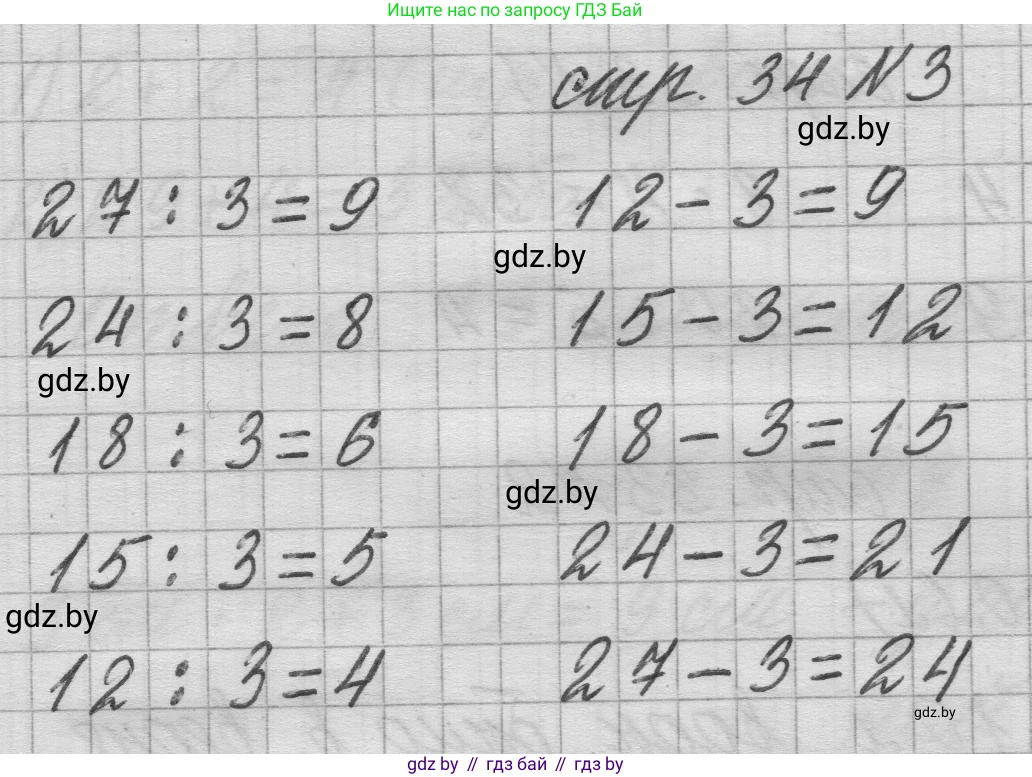 Ищите нас по запросу ГДЗ Бай
стр. 34 N 3
gdz.by
27 : 3 = 9 12 - 3 = 9
gdz.by
24 : 3 = 8 15 - 3 = 12
gdz.by
18 : 3 = 6 18 - 3 = 15
gdz.by
15 : 3 = 5 24 - 3 = 21
gdz.by
12 : 3 = 4 27 - 3 = 24
gdz.by
gdz.by // гдз бай // гдз by